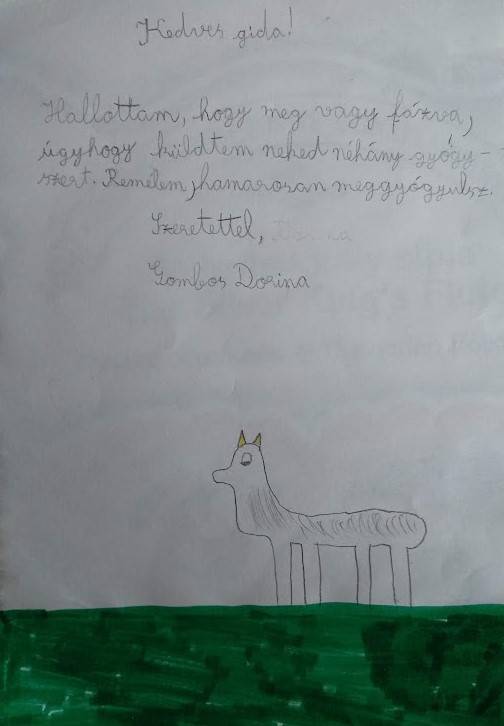 Kedves gida!
Hallottam, hogy meg vagy fázva,
úgyhogy küldtem neked néhány gyógy-
szert. Remélem, hamarosan meggyógyulsz.
Szeretettel,
Gombos Dorina